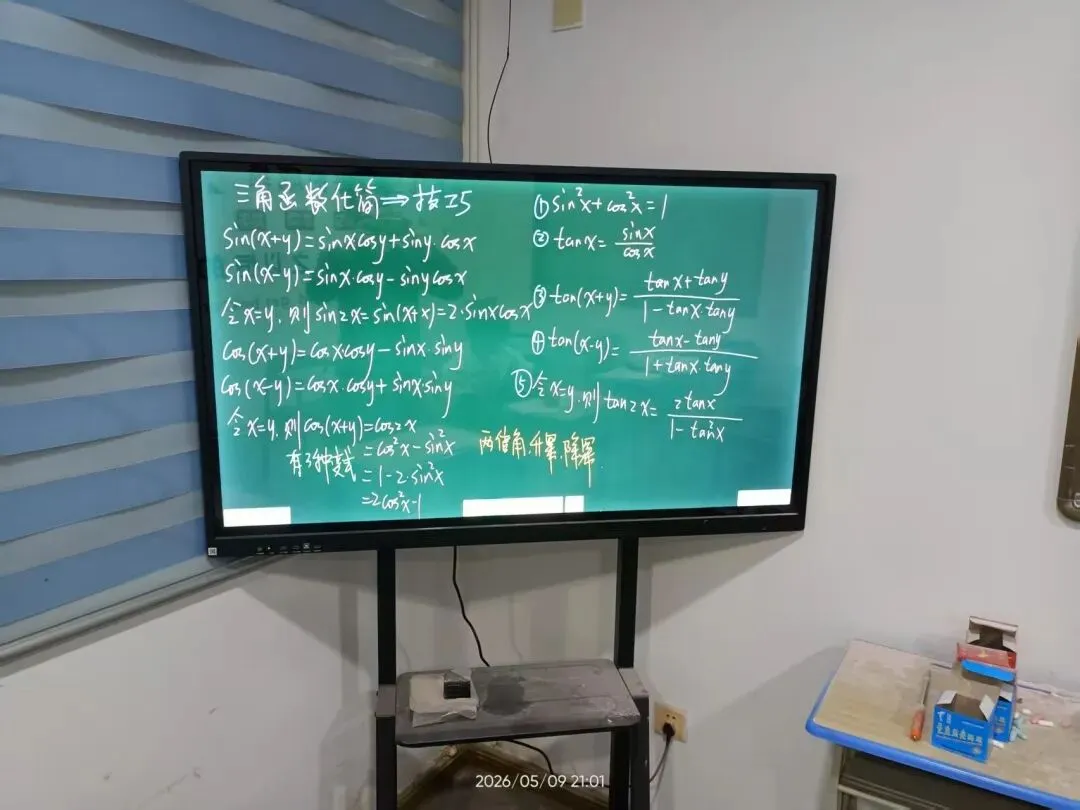 三角函数化简⇒技巧
sin(x+y)=sinxcosy+siny·cosx
sin(x-y)=sinx·cosy-sinycosx
令x=y,则sin2x=sin(x+x)=2·sinxcosx
cos(x+y)=cosxcosy-sinx·siny
cos(x-y)=cosx·cosy+sinx·siny
令x=y,则cos(x+y)=cos2x
有3种变式=cos²x-sin²x
=1-2·sin²x
=2cos²x-1
①sin²x+cos²x=1
②tanx=sinx/cosx
③tan(x+y)=(tanx+tany)/(1-tanx·tany)
④tan(x-y)=(tanx-tany)/(1+tanx·tany)
⑤令x=y,则tan2x=2tanx/(1-tan²x)
两倍角,升幂,降幂.
2026/05/09 21:01